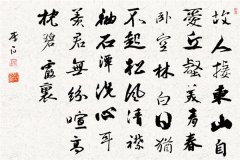 故人棲東山自
愛丘壑美青春
卧空林白日猶
不起松風清襟
袖石潭洗心耳
羨君無紛喧高
枕碧霞裏